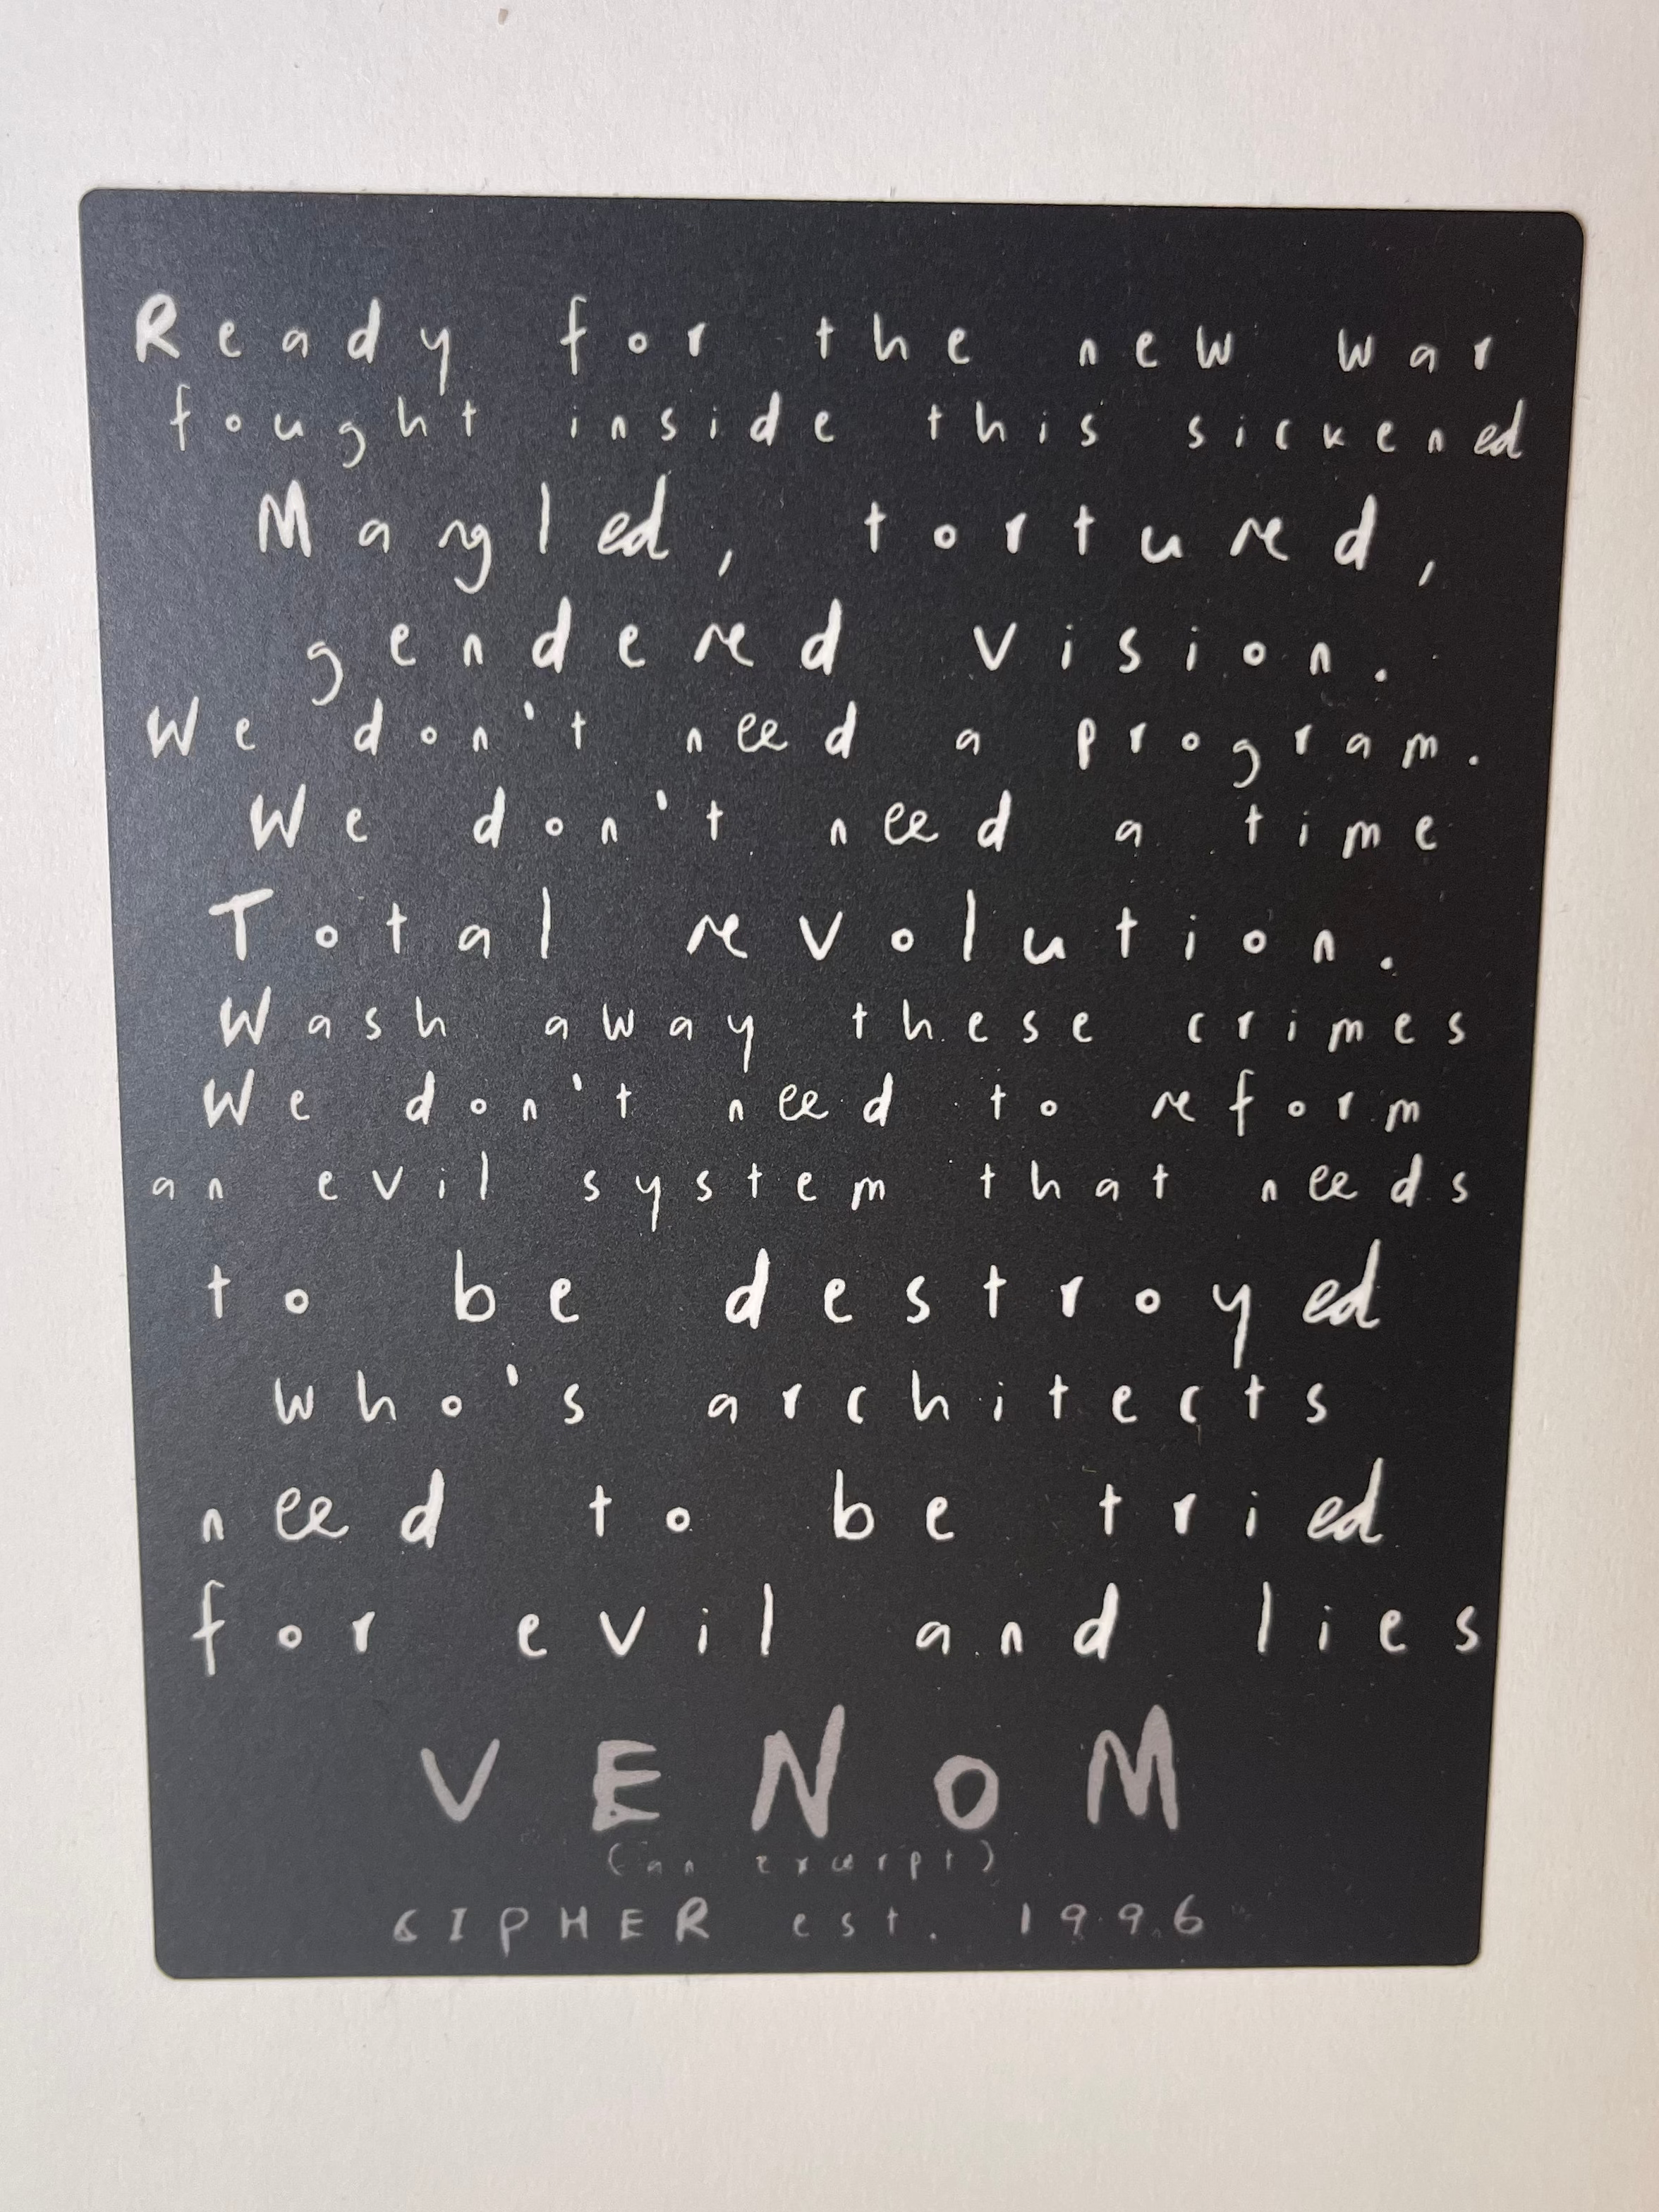 Ready for the new war
fought inside this sickened
Mangled, tortured,
gendered vision.
We don't need a program.
We don't need a time
Total revolution.
Wash away these crimes
We don't need to reform
an evil system that needs
to be destroyed
who's architects
need to be tried
for evil and lies
VENOM
(an excerpt)
CIPHER est. 1996